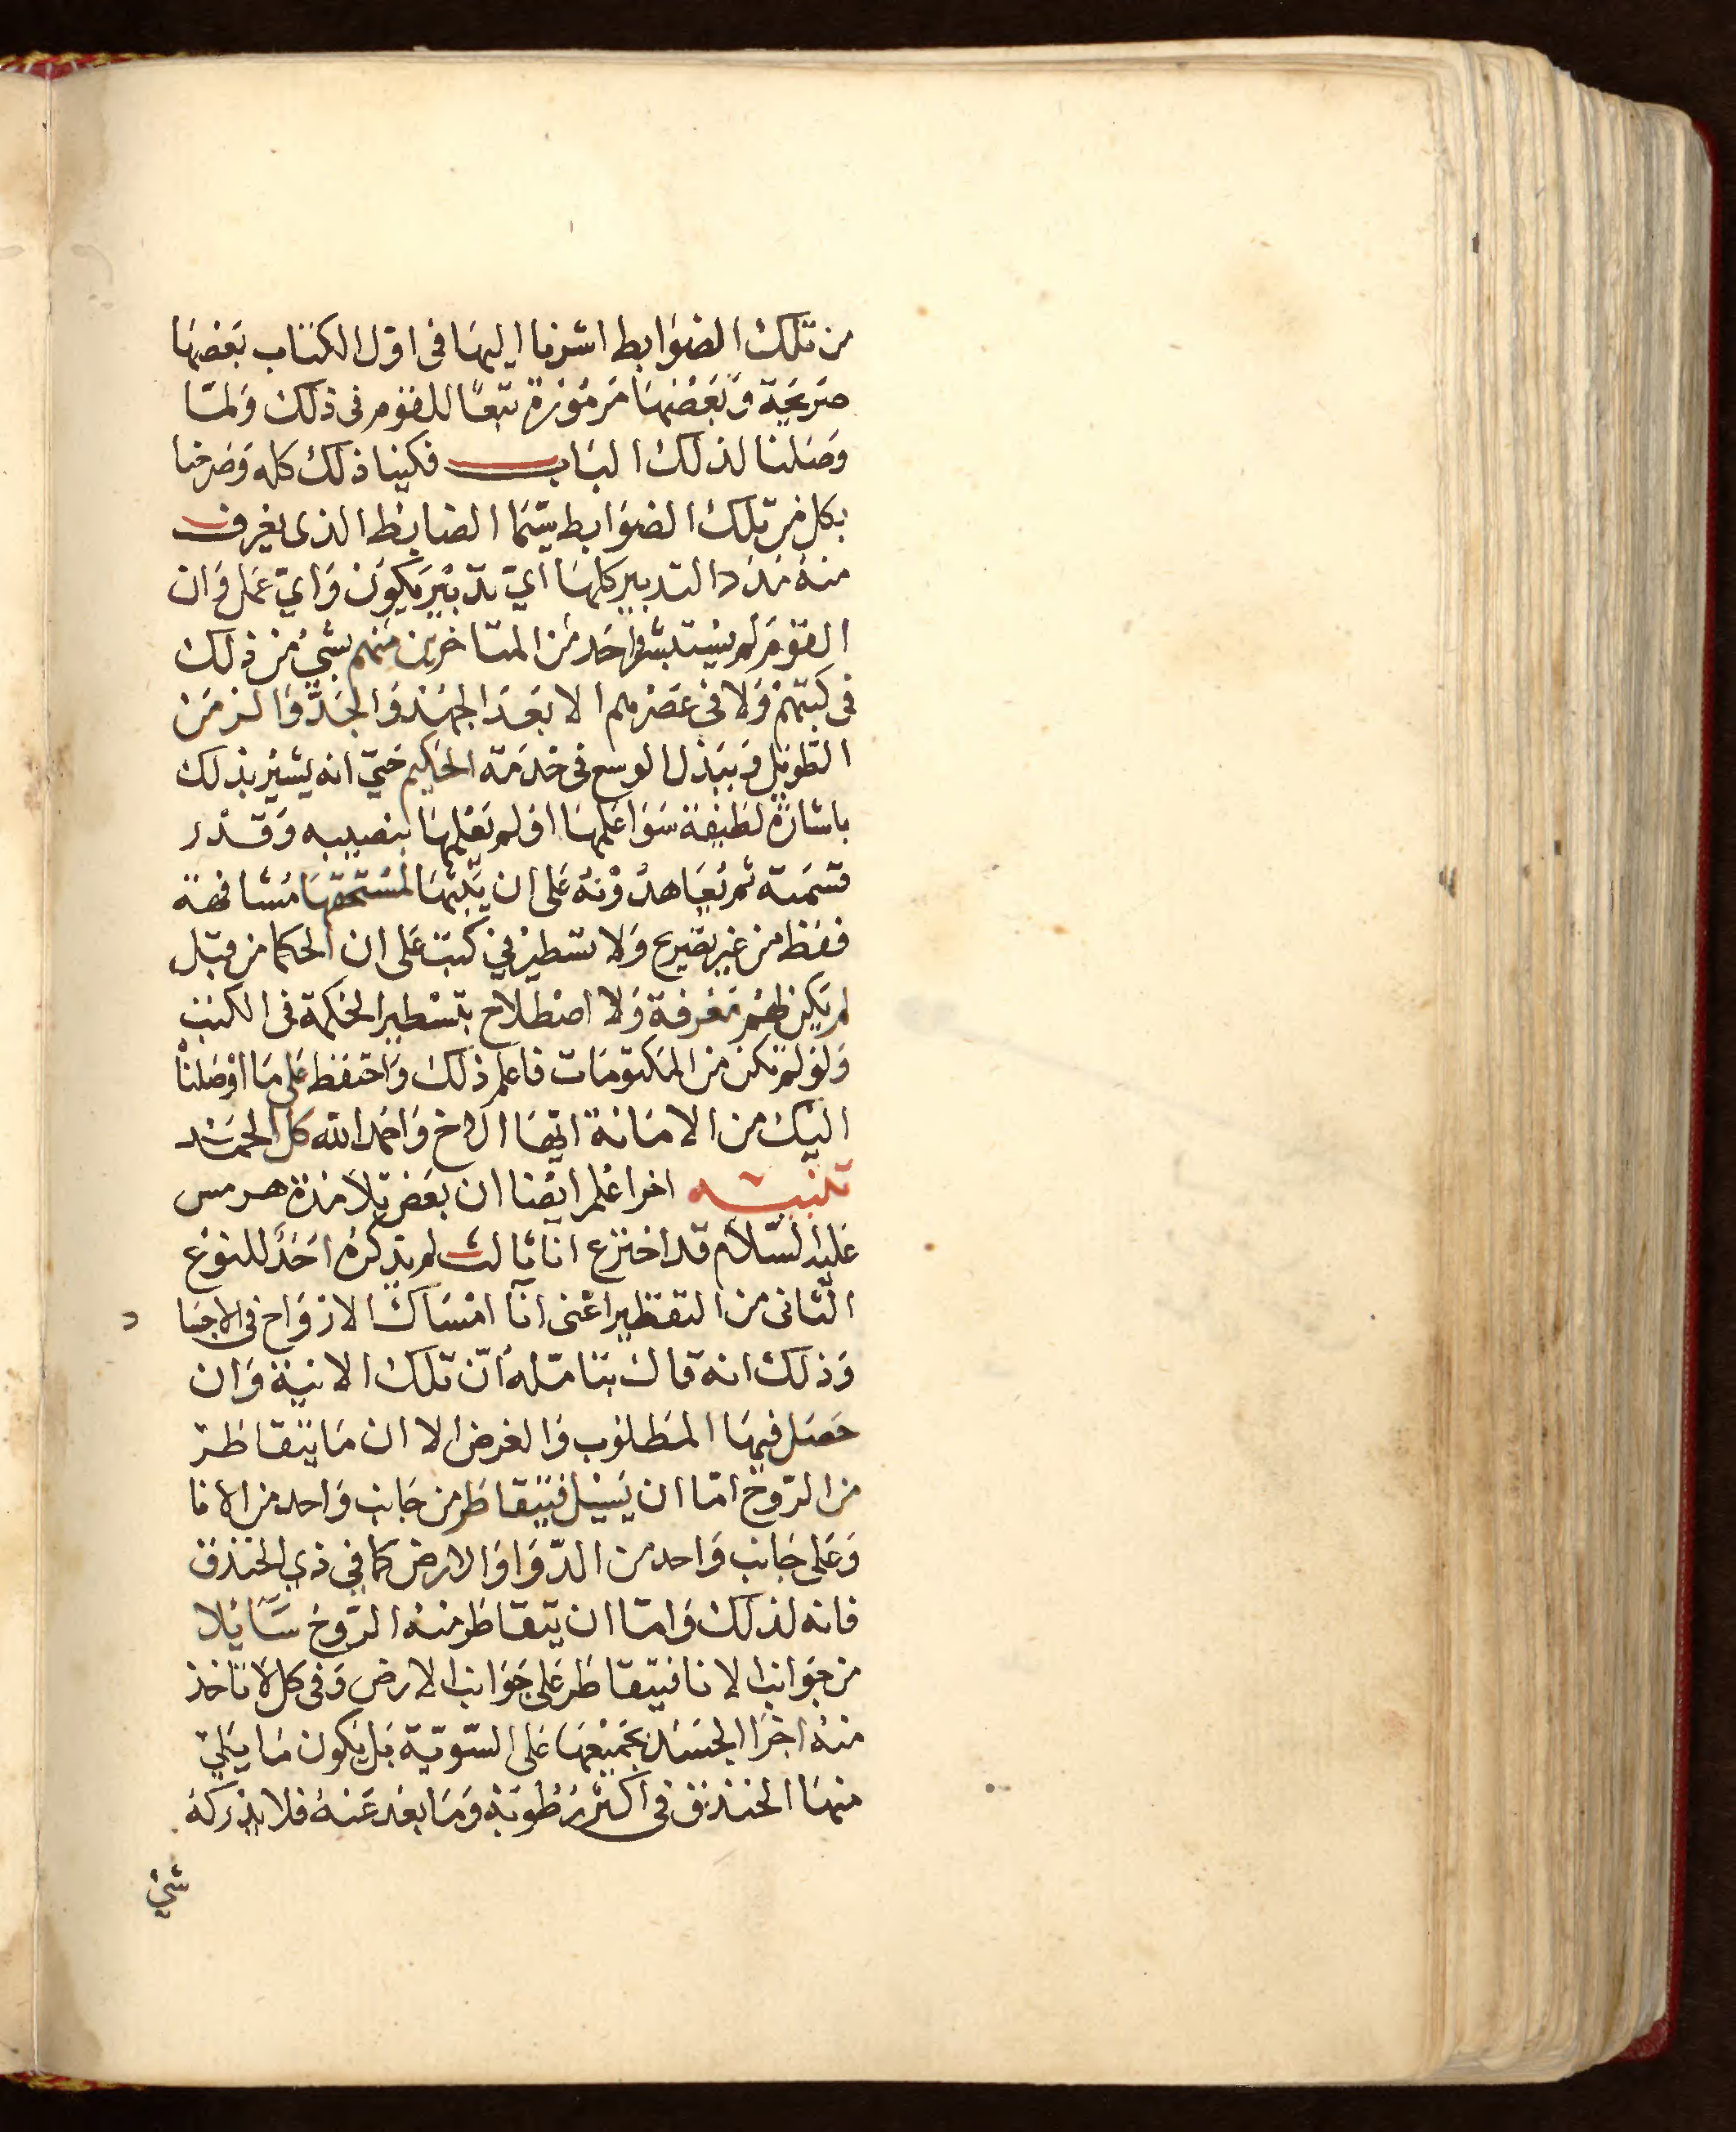 من تلك الضوابط اشرنا اليها فى اول الكتاب بعضها
صريحة وبعضها مرموزة تبعًا للقوم فى ذلك ولمّا
وصلنا لذلك الباب فكينا ذلك كله وصرحنا
بكل من تلك الضوابط سيّما الضابط الذى يعرف
منه التدبير كلها اىّ تدبير يكون واىّ عمل وان
القوم لم احد من المتاخرين منهم بشىء من ذلك
فى كتبهم ولا فى عصرهم الا بعد الجهد والجدّ والزمن
الطويل وببذل الوسع فى خدمة الحكيم حتى انه يشير بذلك
باشارة لطيفة سوا علمها او لم يعلمها بنصيبه وقدر
قسمته ثم يعاهدونه على ان لمستحقها مشافهة
فقط من غير تصريح ولا تسطير فى كتب على ان الحكما من قبل
لم يكن لهم معرفة ولا اصطلاح بتسطير الحكمة فى الكتب
ولو لم تكن من المكتومات فاعلم ذلك واحتفظ على ما اوصلنا
اليك من الامانة ايها الاخ واحمد الله كل الحمد
تنبيه اخر اعلم ايضا ان بعض تلامذة هرمس
عليه السّلام قد اخترع انا ثالث لم يذكره احد للنوع
الثانى من التقطير اعنى انآ امساك الارواح فى الاجسا
د
وذلك انه قال بتامّله انّ تلك الانية وان
حصل فيها المطلوب والغرض الا ان ما يتقاطر
من الرّوح امّا ان يسيل فيتقاطر من جانب واحد من الانا
وعلى جانب واحد من الدّوا والارض كما فى ذى الخندق
فانه لذلك وامّا ان يتقاطر منه الرّوح سآئلا
من جوانب الانا فيتقاطر على جوانب الارض وفى كل لا تاخذ
منه اجزا الجسد بجميعها على السّويّة بل يكون ما يلى
منها الخندق فى اكثر رطوبة وما بعد عنه فلا يدركه
شئ